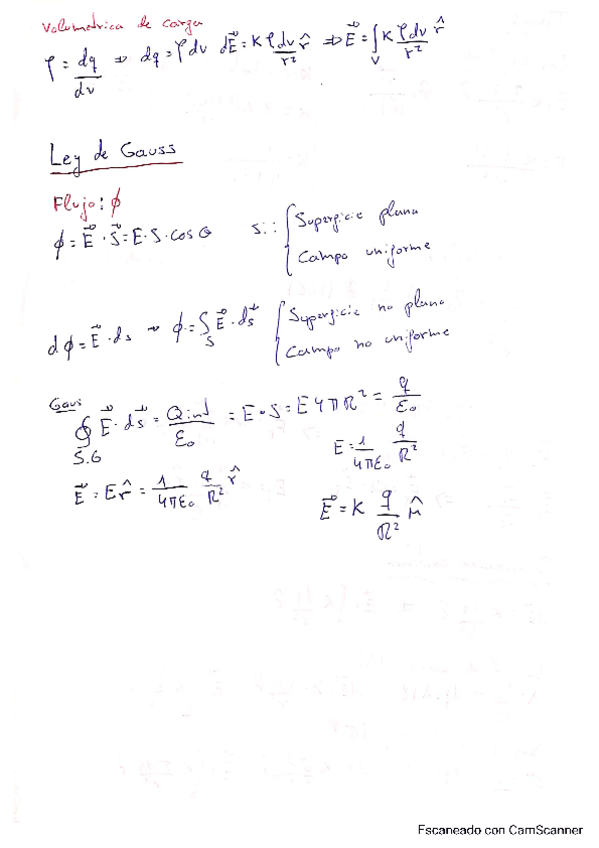 Volumetrica de carga
ρ = dq/dv ⇒ dq = ρ dv dE⃗ = K ρdv/r² r̂ ⇒ E⃗ = ∫_V K ρdv/r² r̂
Ley de Gauss
Flujo: ϕ
ϕ = E⃗ · S⃗ = E · S · cos θ si: { Superficie plana
Campo uniforme
dϕ = E⃗ · ds ⇒ ϕ = ∫_S E⃗ · ds⃗ { Superficie no plana
Campo no uniforme
Gaus
∮_S.G E⃗ · ds⃗ = Qind/ε₀ = E · S = E 4πR² = q/ε₀
E = 1/4πε₀ q/R²
E⃗ = E r̂ = 1/4πε₀ q/R² r̂
E⃗ = K q/R² r̂
Escaneado con CamScanner